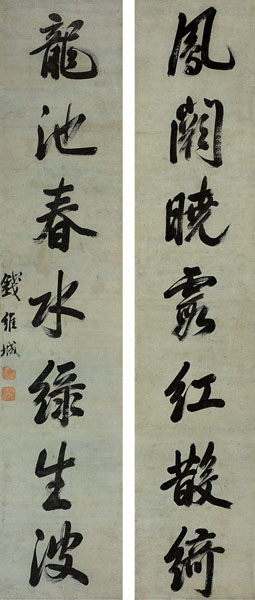 鳳闕曉霞紅散綺
龍池春水綠生波
錢維城